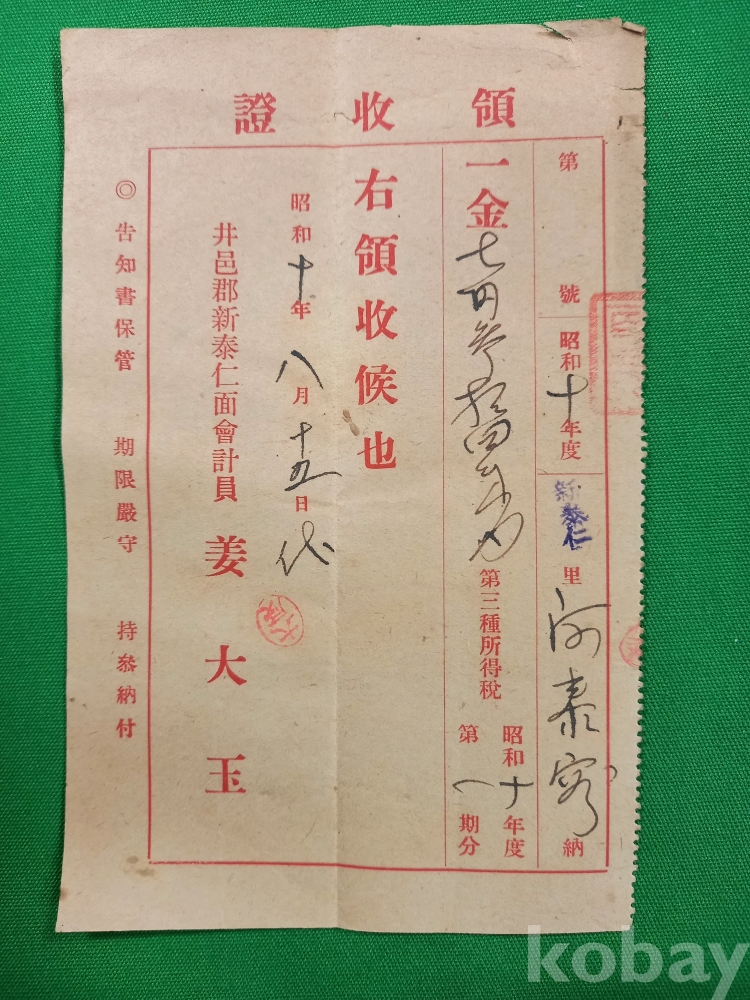 領收證
第 號 昭和十年度 新泰仁里 泰 納
一金七円参拾四銭
第三種所得稅 昭和十年度 第一期分
右領收候也
昭和十年八月十五日 代
井邑郡新泰仁面會計員 姜大玉
◎告知書保管 期限嚴守 持參納付
kobay